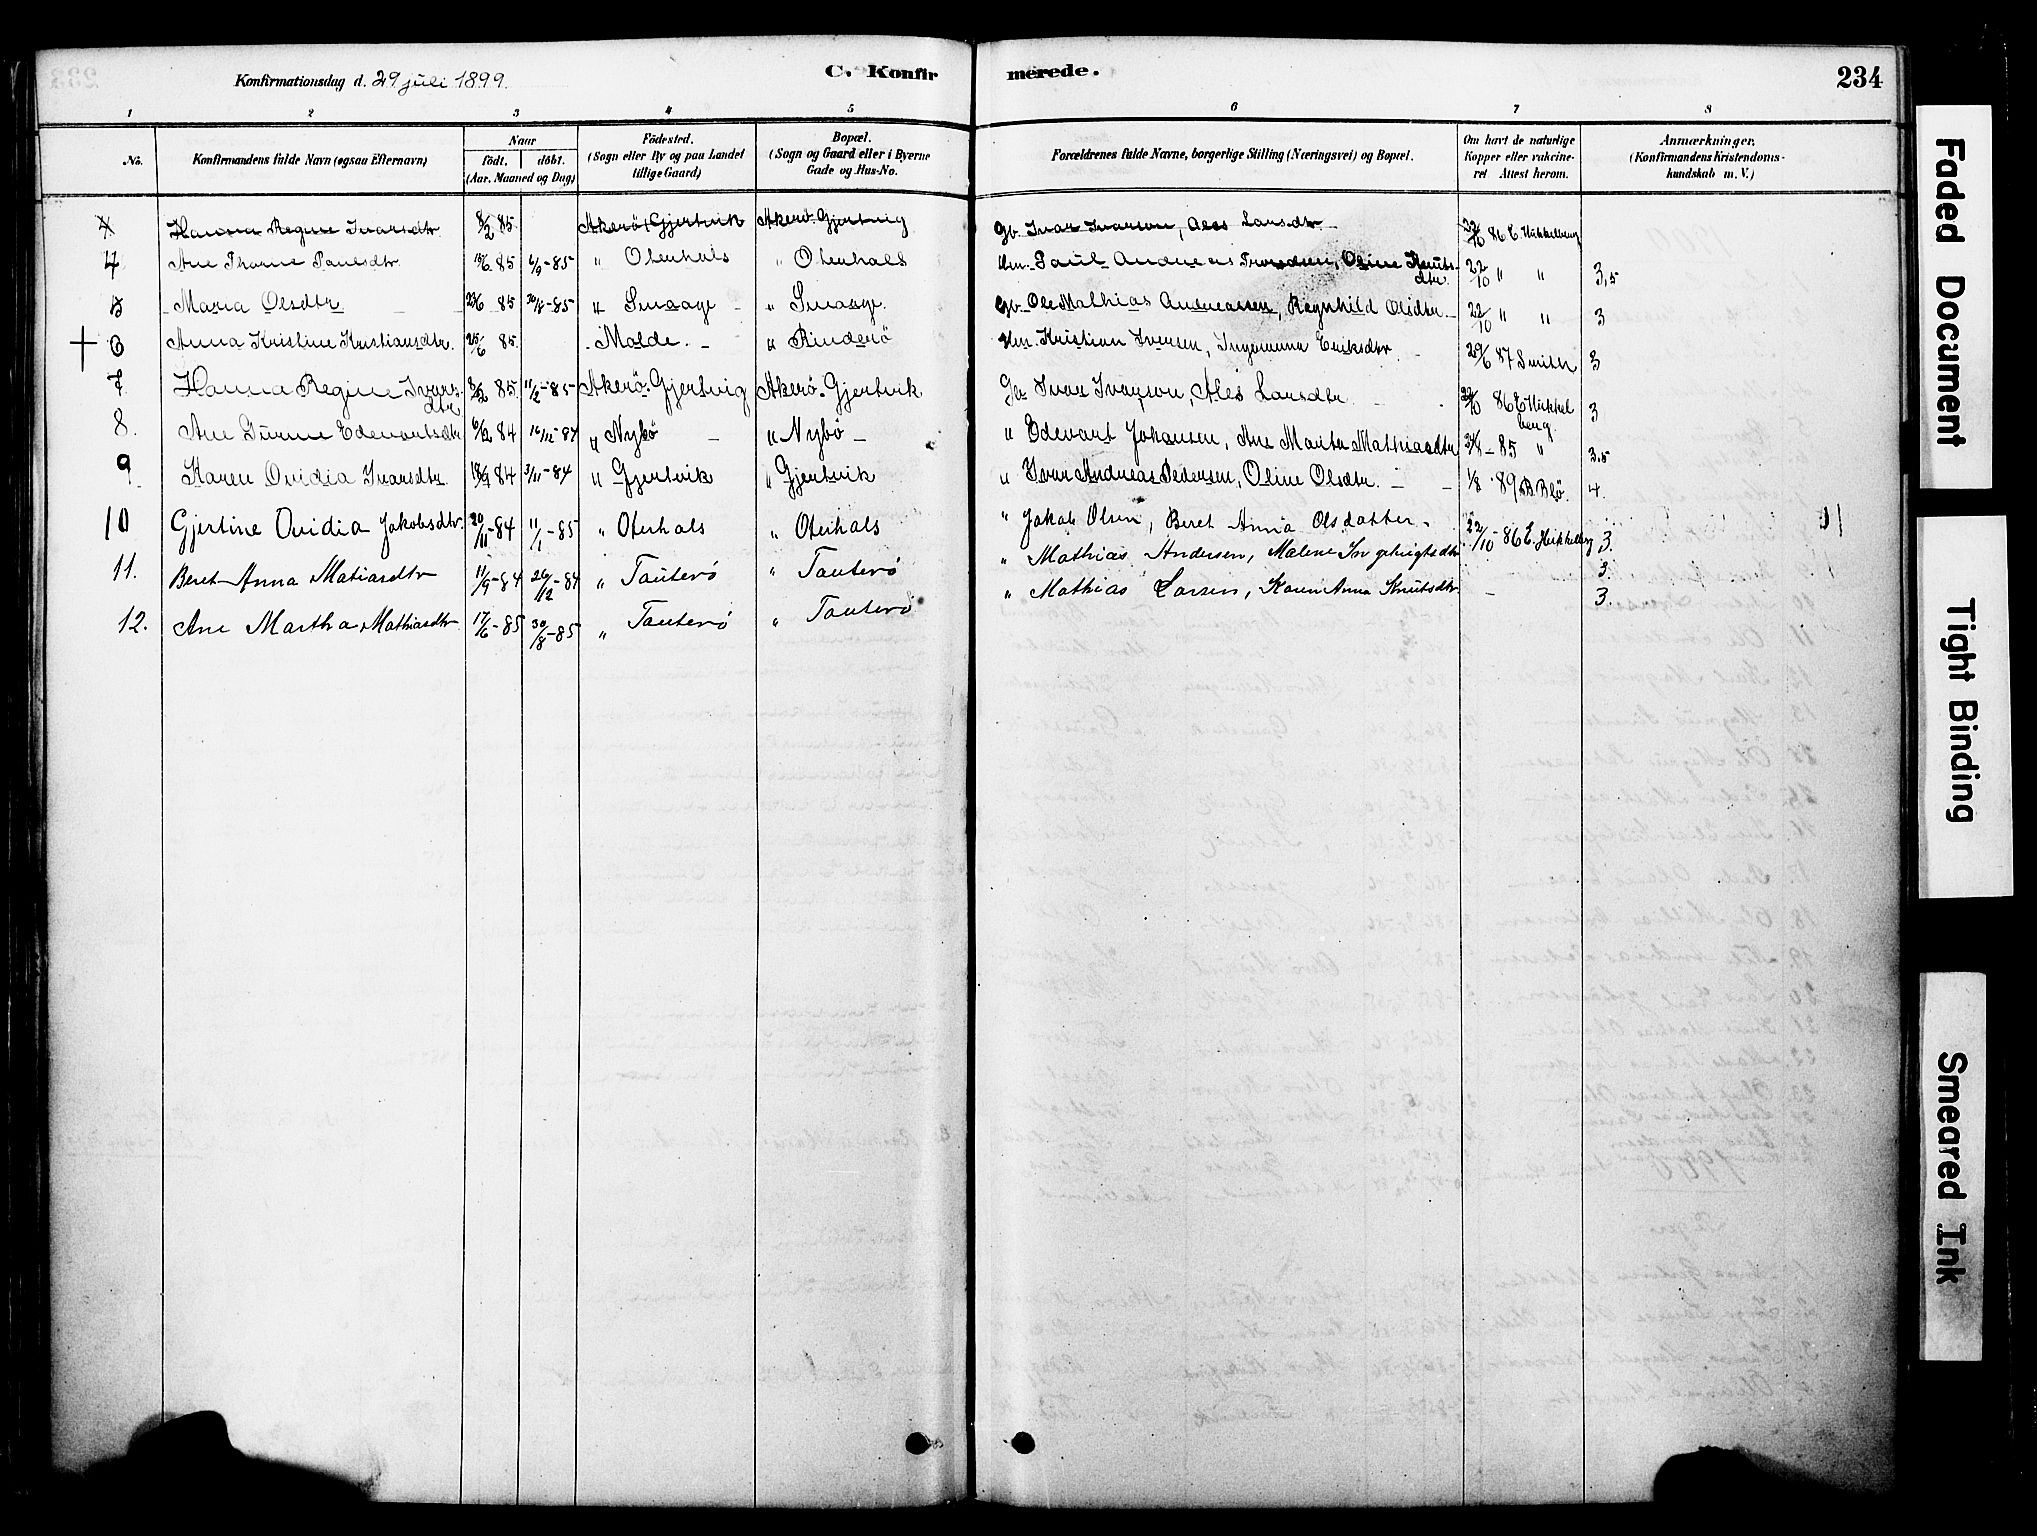 Konfirmationsdag d. 29 juli 1899. C. Konfirmerede. 234
1 2 3 4 5 6 7 8
No. Konfirmandens fulde Navn (ogsaa Efternavn) Naar født. døbt. (Aar, Maaned og Dag) Fødested. (Sogn eller By og paa Landet tillige Gaard) Bopæl. (Sogn og Gaard eller i Byerne Gade og Hus-No. Forældrenes fulde Navne, borgerlige Stilling (Næringsvei) og Bopæl. Om havt de naturlige Kopper eller vakcineret Attest herom. Anmærkninger. (Konfirmandens Kristendomskundskab m. V.)
4 Hanna Regine Ivarsdtr 8/2 85 Akerö, Gjertvik Akerö. Gjertvig Gb. Ivar Iverson, Ales Larsdtr 22/10 86 E. Hikkelberg
4 Ane Paulsdtr 85 6/9-85 " Oterhals " Oterhals Paul Andreas Oline Knutsdtr. 22/10 " " 3,5
5 Maria Olsdtr 85 30/8-85 " Smaage " Smaage Gb. Ole Mathias Andreassen, Regnhild Olsdtr. 22/10 " " 3
+ 6 Anna Kristine Kristiansdtr. 25/6 85. Molde. " Rinderö Hm. Kristian Iversen, Ingeranna Eriksdtr 29/6 87 Smith 3
7 Hanna Regine Ivarsdtr 8/2 85 11/2-85 Akerö. Gjertvig Akerö. Gjertvik Gb Ivar Ivarson, Ales Larsdtr. 22/10 86 E. Hikkelberg. 3
8. Ane Edevartsdtr 84 " Nybö " Nybö " Edevart Johansen, Ane Marta Mathiasdtr -85 " 3.5
9 Karen Ovidia Ivarsdtr. 84 3/11-84 " Gjertvik " Gjertvik " Ivar Andreas Pedersen, Oline Olsdtr. 1/8 89 B. Blö. 4.
10 Gjertine Ovidia Jakobsdtr. 20/11-84 11/1-85 " Oterhals " Oterhals " Jakob Olsen, Beret Anna Olsdatter. 22/10-86 E. Hikkelberg 3.
11. Beret Anna Matiasdtr 11/9-84 26/12-84 " Tauterö " Tauterö " Mathias Andersen, Malene Ingebrigtsdtr 3.
12. Ane Martha Mathiasdtr 17/6-85 30/8-85 " Tauterö " Tauterö " Mathias Larsen, Karen Anna Knutsdtr 3.
Faded Document
Tight Binding
Smeared Ink